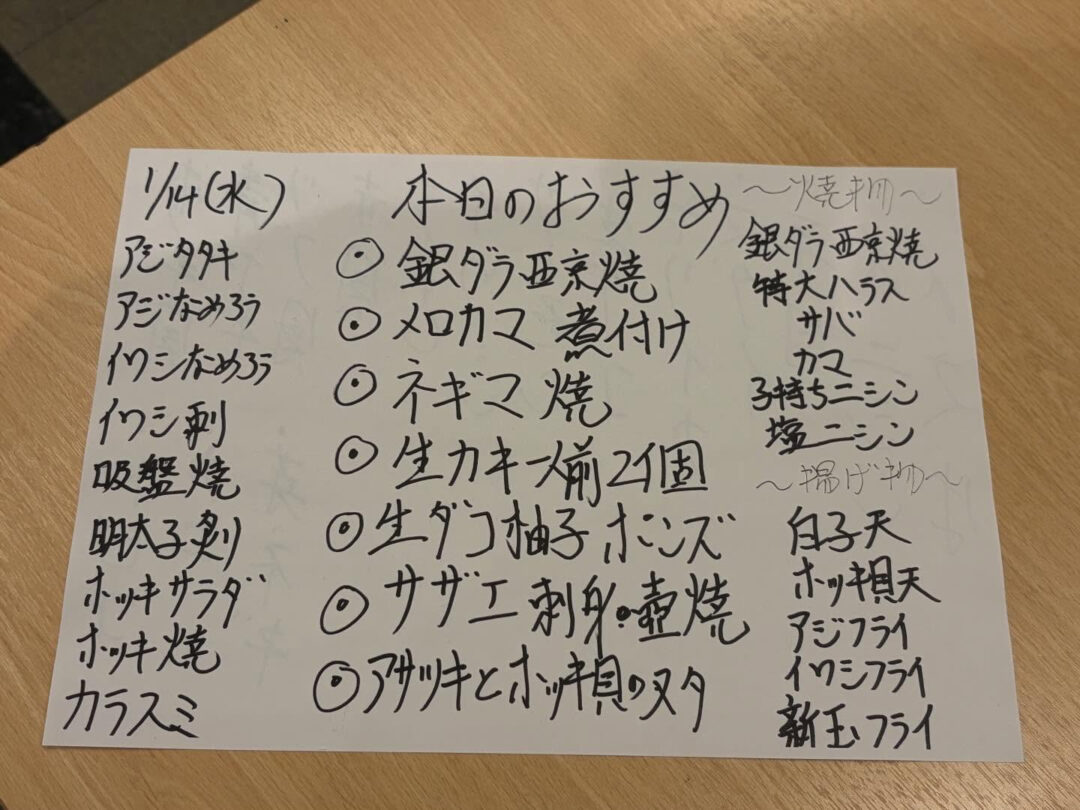 1/14(水)
アジタタキ
アジなめろう
イワシなめろう
イワシ刺
吸盤焼
明太子炙り
ホッキサラダ
ホッキ焼
カラスミ
本日のおすすめ
◎銀ダラ西京焼
◎メロカマ 煮付け
◎ネギマ 焼
◎生カキ一人前2個
◎生ダコ柚子ポンズ
◎サザエ 刺身・壺焼
◎アサツキとホッキ貝のヌタ
〜焼き物〜
銀ダラ西京焼
特大ハラス
サバ
カマ
子持ちニシン
塩ニシン
〜揚げ物〜
白子天
ホッキ貝天
アジフライ
イワシフライ
新玉フライ